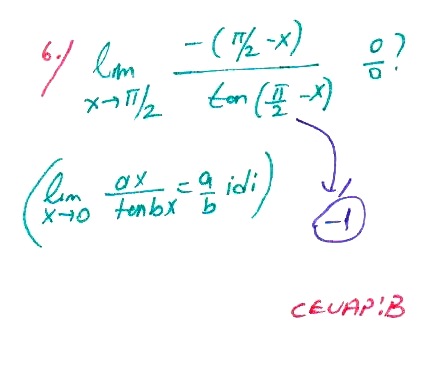 6./ lim x→π/2 -(π/2-x) / tan(π/2-x) 0/0?
(lim x→0 ax/tanbx = a/b idi) -1
CEVAP:B